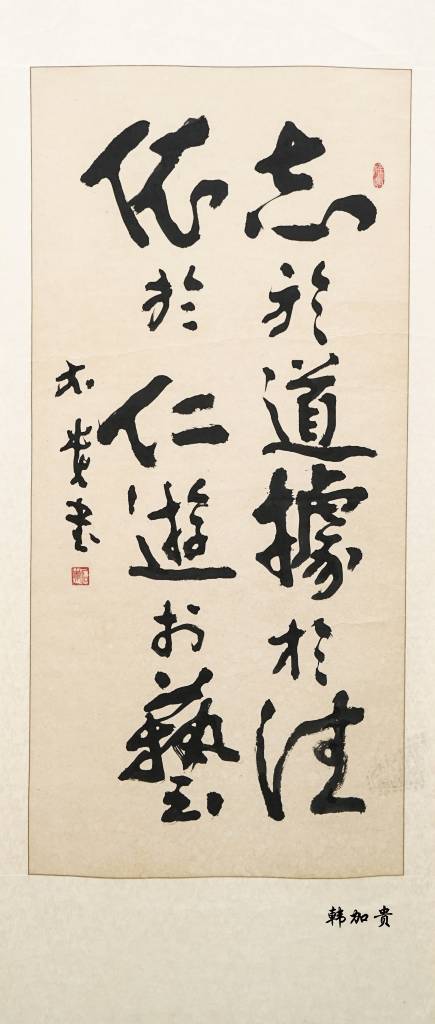 志於道據於德
依於仁遊於藝
加貴書
韩加贵